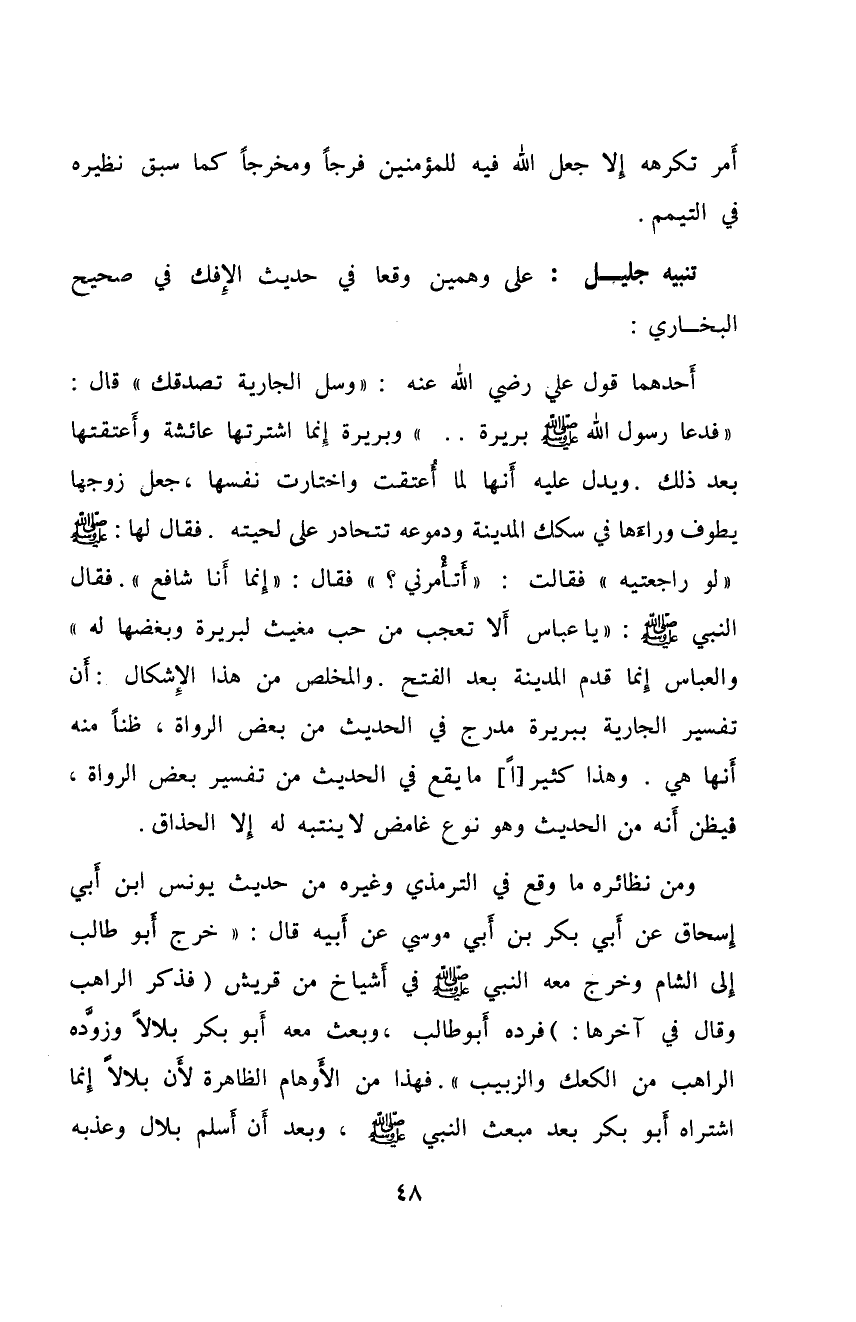 أَمر تكرهه إلا جعل الله فيه للمؤمنين فرجاً ومخرجاً كما سبق نظيره
في التيمم .
تنبيه جليــل : على وهمين وقعا في حديث الإِفك في صحيح
البخــاري :
أَحدهما قول علي رضي الله عنه : «وسل الجارية تصدقك » قال :
«فدعا رسول الله ﷺ بريرة . . » وبريرة إنما اشترتها عائشة وأَعتقتها
بعد ذلك . ويدل عليه أَنها لما أُعتقت واختارت نفسها ، جعل زوجها
يطوف وراءَها في سكك المدينة ودموعه تتحادر على لحيته . فقال لها : ﷺ
«لو راجعتيه » فقالت : «أَتأْمرني ؟ » فقال : «إنما أَنا شافع ». فقال
النبي ﷺ : «يا عباس أَلا تعجب من حب مغيث لبريرة وبغضها له »
والعباس إنما قدم المدينة بعد الفتح . والمخلص من هذا الإِشكال : أَن
تفسير الجارية ببريرة مدرج في الحديث من بعض الرواة ، ظناً منه
أَنها هي . وهذا كثير[اً] ما يقع في الحديث من تفسير بعض الرواة ،
فيظن أَنه من الحديث وهو نوع غامض لا ينتبه له إلا الحذاق .
ومن نظائره ما وقع في الترمذي وغيره من حديث يونس ابن أَبي
إسحاق عن أَبي بكر بن أَبي موسي عن أَبيه قال : « خرج أَبو طالب
إلى الشام وخرج معه النبي ﷺ في أَشياخ من قريش ( فذكر الراهب
وقال في آخرها : ) فرده أَبوطالب ، وبعث معه أَبو بكر بلالاً وزوَّده
الراهب من الكعك والزبيب ». فهذا من الأَوهام الظاهرة لأَن بلالاً إنما
اشتراه أَبو بكر بعد مبعث النبي ﷺ ، وبعد أَن أَسلم بلال وعذبه
٤٨